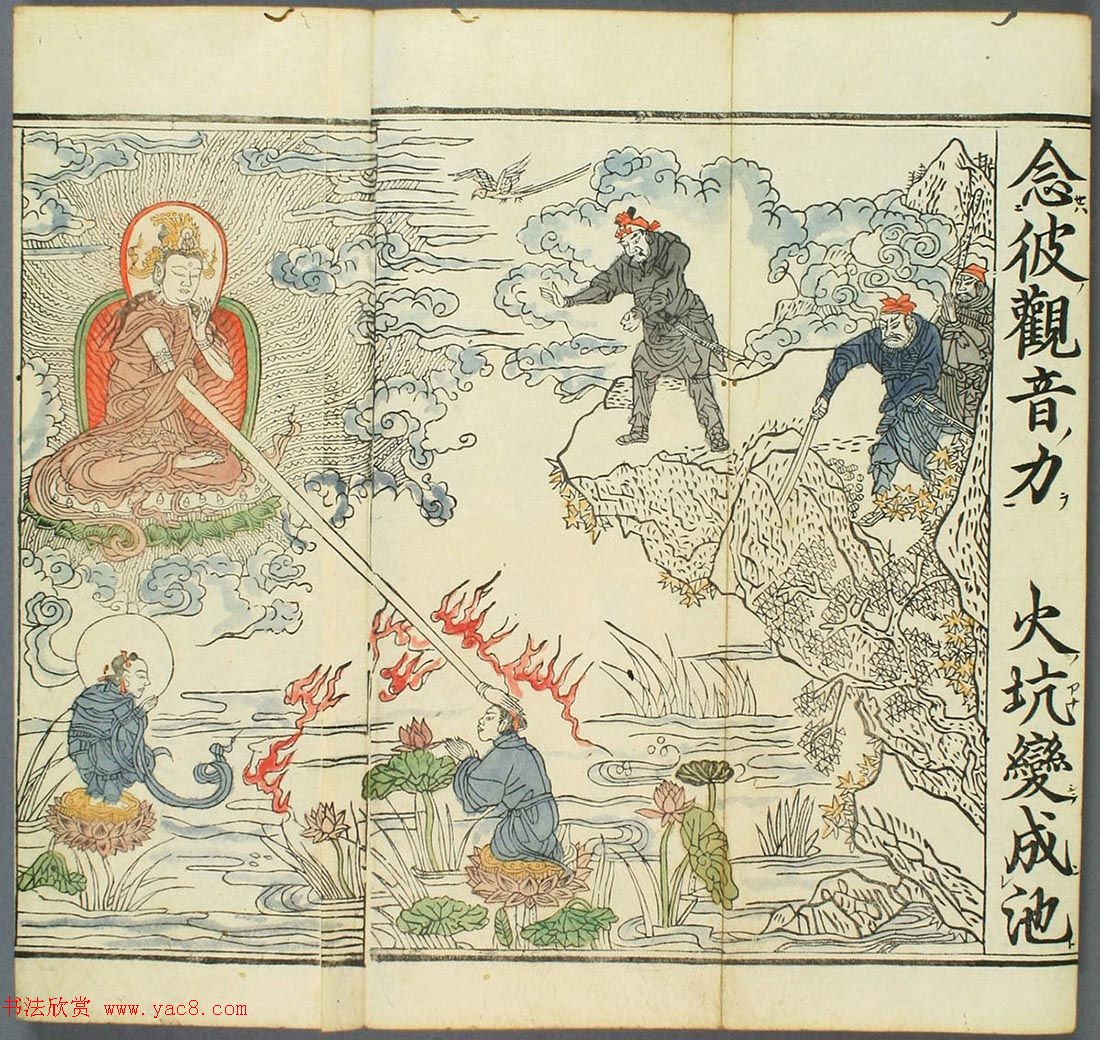 念彼觀音力 火坑變成池
书法欣赏 www.yac8.com